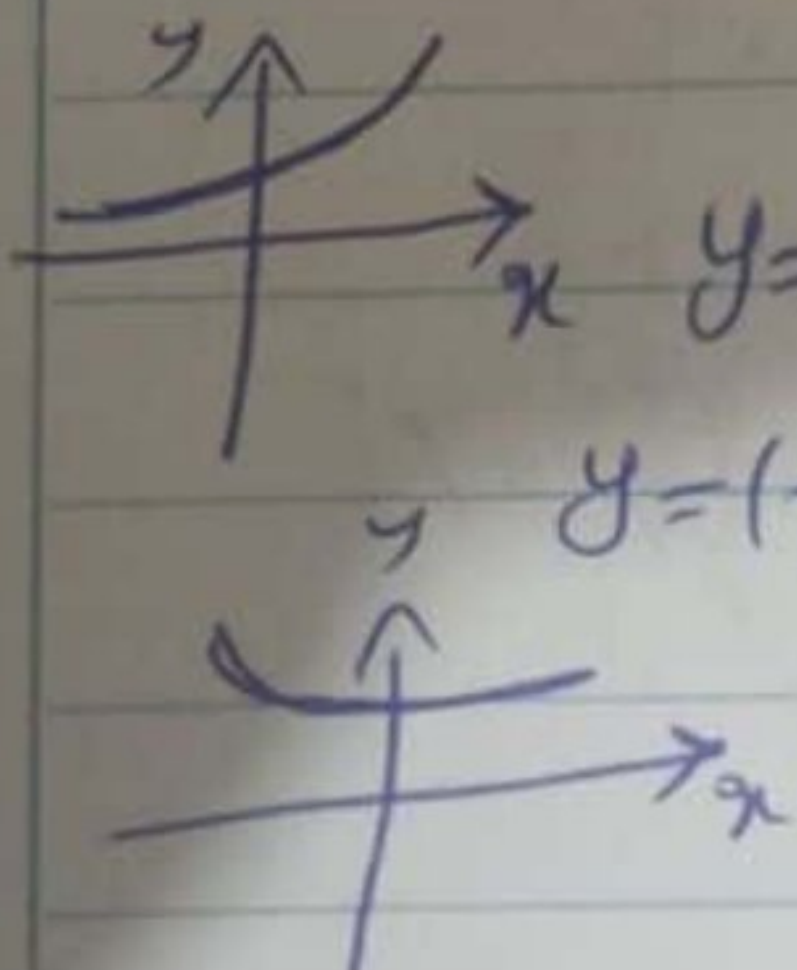 y
x
y=
y=(
y
x